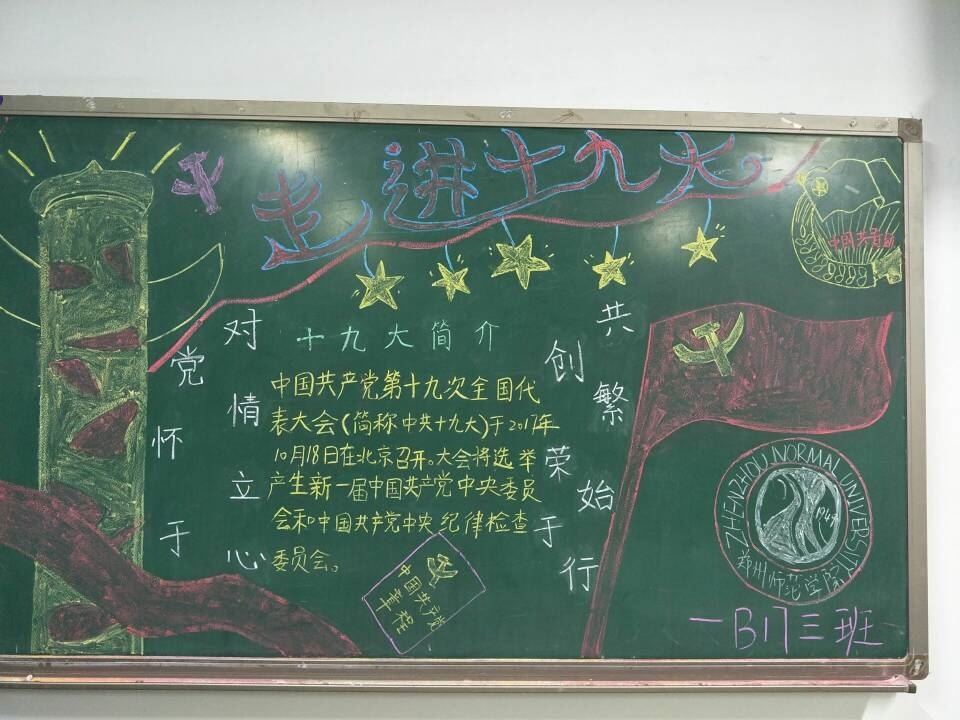 走进十九大
中国共青团
对党情怀立于心
十九大简介
中国共产党第十九次全国代
表大会(简称中共十九大)于2017年
10月18日在北京召开。大会将选举
产生新一届中国共产党中央委员
会和中国共产党中央纪律检查
委员会。
中国共产党
章程
共创繁荣始于行
ZHENZHOU NORMAL UNIVERSITY
1949
郑州师范学院
一B17三班